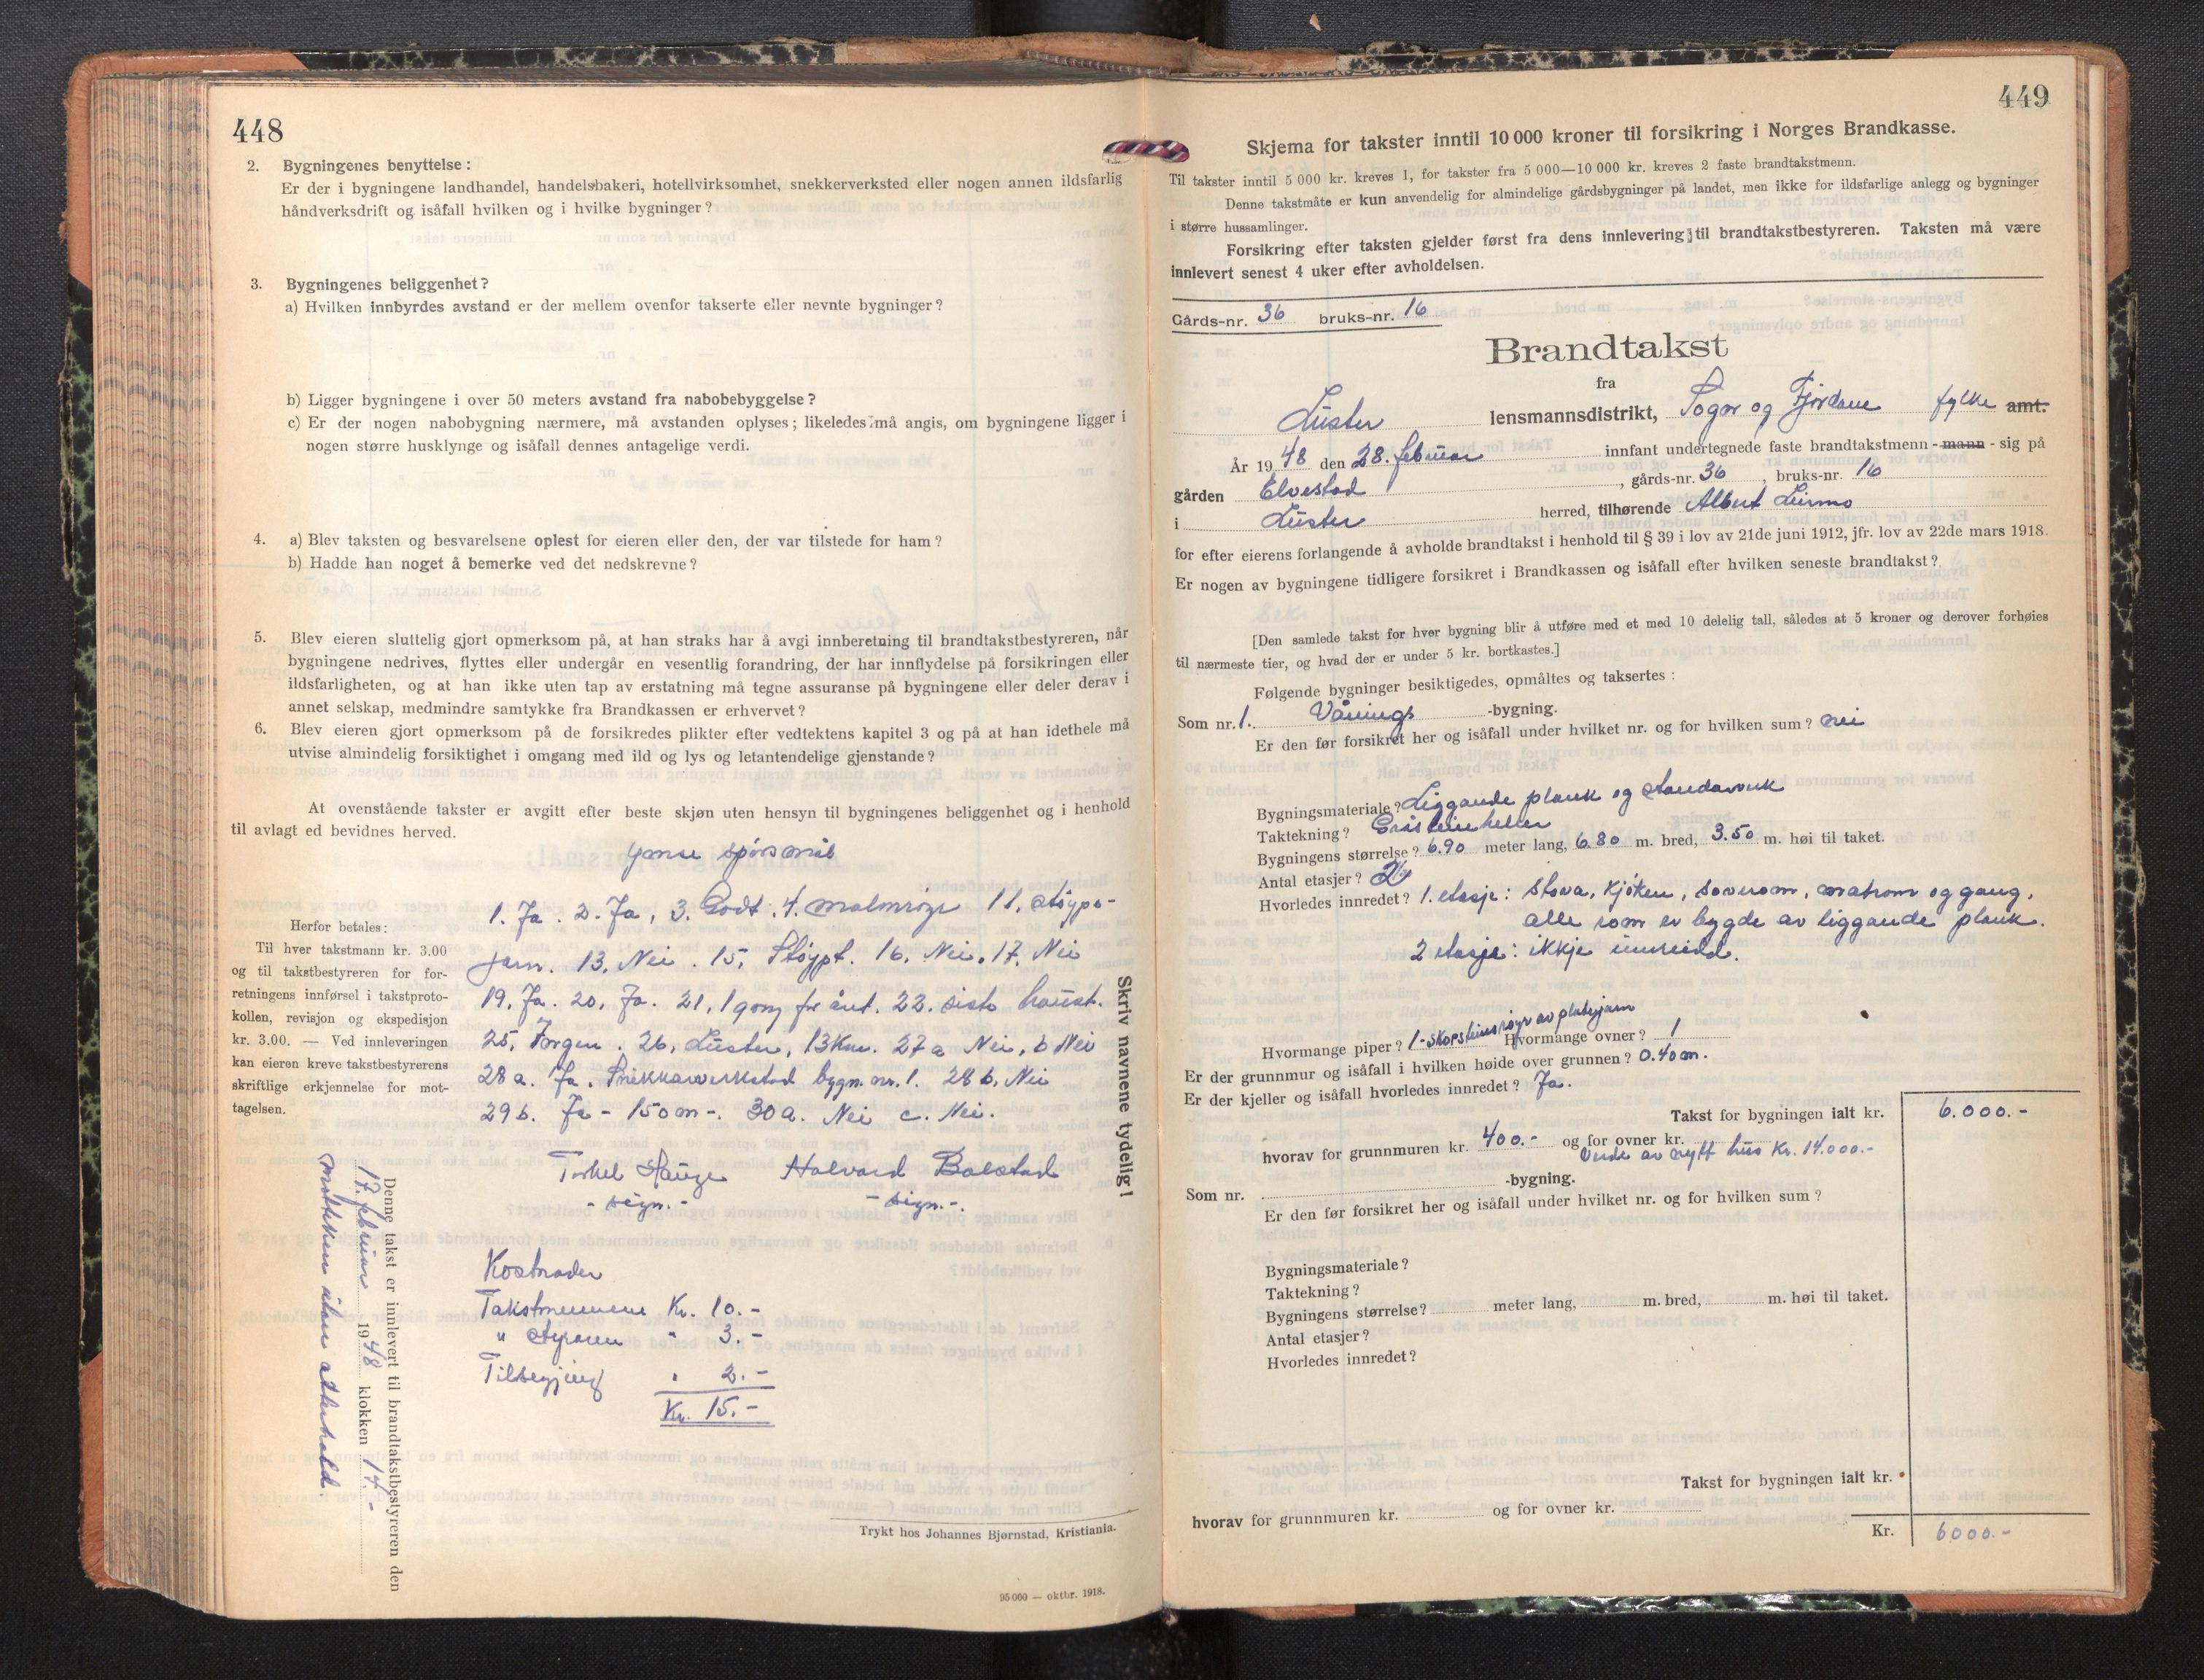 448
2. Bygningenes benyttelse:
Er der i bygningene landhandel, handelsbakeri, hotellvirksomhet, snekkerverksted eller nogen annen ildsfarlig
håndverksdrift og isåfall hvilken og i hvilke bygninger?
3. Bygningenes beliggenhet?
a) Hvilken innbyrdes avstand er der mellem ovenfor takserte eller nevnte bygninger?
b) Ligger bygningene i over 50 meters avstand fra nabobebyggelse?
c) Er der nogen nabobygning nærmere, må avstanden oplyses; likeledes må angis, om bygningene ligger i
nogen større husklynge og isåfall dennes antagelige verdi.
4. a) Blev taksten og besvarelsene oplest for eieren eller den, der var tilstede for ham?
b) Hadde han noget å bemerke ved det nedskrevne?
5. Blev eieren sluttelig gjort opmerksom på, at han straks har å avgi innberetning til brandtakstbestyreren, når
bygningene nedrives, flyttes eller undergår en vesentlig forandring, der har innflydelse på forsikringen eller
ildsfarligheten, og at han ikke uten tap av erstatning må tegne assuranse på bygningene eller deler derav i
annet selskap, medmindre samtykke fra Brandkassen er erhvervet?
6. Blev eieren gjort opmerksom på de forsikredes plikter efter vedtektens kapitel 3 og på at han idethele må
utvise almindelig forsiktighet i omgang med ild og lys og letantendelige gjenstande?
At ovenstående takster er avgitt efter beste skjøn uten hensyn til bygningenes beliggenhet og i henhold
til avlagt ed bevidnes herved.
Ymse spørsmål
1. Ja. 2. Ja. 3. Godt. 4. malmrøyr 11. støype-
jarn. 13. Nei. 15. Støypt. 16. Nei. 17. Nei
19. Ja. 20. Ja. 21. 1 gong for året. 22. siste haust.
25. 26. Luster, 13 Km. 27 a Nei, b Nei
28 a. Ja. Snikkarverkstad bygn. nr. 1. 28 b. Nei
29 b. Ja - 150 m -. 30 a. Nei c. Nei.
Torkel Hauge Halvard Bolstad
- sign. - - sign. -.
Herfor betales:
Til hver takstmann kr. 3.00
og til takstbestyreren for for-
retningens innførsel i takstproto-
kollen, revisjon og ekspedisjon
kr. 3.00. — Ved innleveringen
kan eieren kreve takstbestyrerens
skriftlige erkjennelse for mot-
tagelsen.
Skriv navnene tydelig!
Denne takst er innlevert til brandtakstbestyreren den
17. februar 1948 klokken 14.-
motteken utan atterhald.
Kostnader
Takstmennene Kr. 10.-
" styraren " 3.-
Tilsegjing " 2.-
Kr. 15.-
Trykt hos Johannes Bjørnstad, Kristiania.
95 000 — oktbr. 1918.
449
Skjema for takster inntil 10 000 kroner til forsikring i Norges Brandkasse.
Til takster inntil 5 000 kr. kreves 1, for takster fra 5 000—10 000 kr. kreves 2 faste brandtakstmenn.
Denne takstmåte er kun anvendelig for almindelige gårdsbygninger på landet, men ikke for ildsfarlige anlegg og bygninger
i større hussamlinger.
Forsikring efter taksten gjelder først fra dens innlevering til brandtakstbestyreren. Taksten må være
innlevert senest 4 uker efter avholdelsen.
Gårds-nr. 36 bruks-nr. 16
Brandtakst
fra
Luster lensmannsdistrikt, Sogn og Fjordane fylke amt.
År 1948 den 28. februar innfant undertegnede faste brandtakstmenn - mann - sig på
gården Elvestad, gårds-nr. 36, bruks-nr. 16
i Luster herred, tilhørende Albert Leirmo
for efter eierens forlangende å avholde brandtakst i henhold til § 39 i lov av 21de juni 1912, jfr. lov av 22de mars 1918.
Er nogen av bygningene tidligere forsikret i Brandkassen og isåfall efter hvilken seneste brandtakst?
[Den samlede takst for hver bygning blir å utføre med et med 10 delelig tall, således at 5 kroner og derover forhøies
til nærmeste tier, og hvad der er under 5 kr. bortkastes.]
Følgende bygninger besiktigedes, opmåltes og taksertes:
Som nr. 1. Vånings -bygning.
Er den før forsikret her og isåfall under hvilket nr. og for hvilken sum? nei
Bygningsmateriale? Liggande plank og standarverk
Taktekning? Gråsteinheller
Bygningens størrelse? 6.90 meter lang, 6.80 m. bred, 3.50 m. høi til taket.
Antal etasjer? 2
Hvorledes innredet? 1. etasje: stova, kjøken, soverom, matrom og gang,
alle rom er bygde av liggande plank.
2 etasje: ikkje innreidd.
Hvormange piper? 1 - skorsteinsrøyr av platejarn Hvormange ovner? 1
Er der grunnmur og isåfall i hvilken høide over grunnen? 0.40 m.
Er der kjeller og isåfall hvorledes innredet? Ja.
Takst for bygningen ialt kr. 6.000.-
hvorav for grunnmuren kr. 400.- og for ovner kr.
Verde av nytt hus Kr. 14.000.-
Som nr. -bygning.
Er den før forsikret her og isåfall under hvilket nr. og for hvilken sum?
Bygningsmateriale?
Taktekning?
Bygningens størrelse? meter lang, m. bred, m. høi til taket.
Antal etasjer?
Hvorledes innredet?
Takst for bygningen ialt kr.
hvorav for grunnmuren kr. og for ovner kr.
Kr. 6000.-